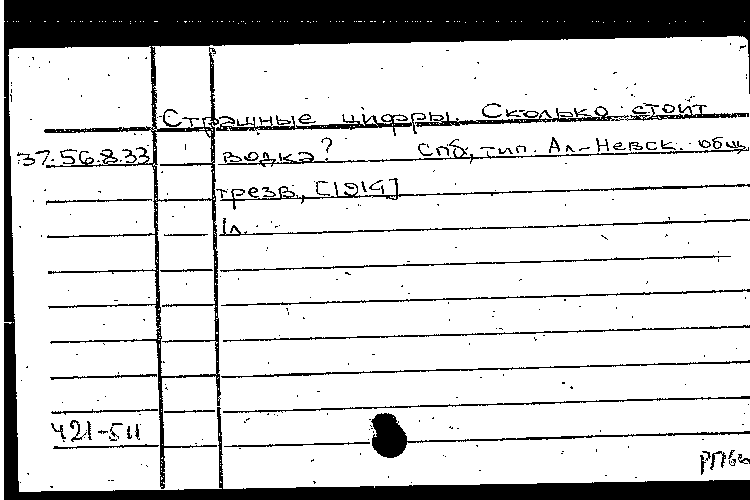 Страшные цифры. Сколько стоит
37.56.8.33 водка? Спб, тип. Ал-Невск. общ
трезв., [1914]
1л.
421-511